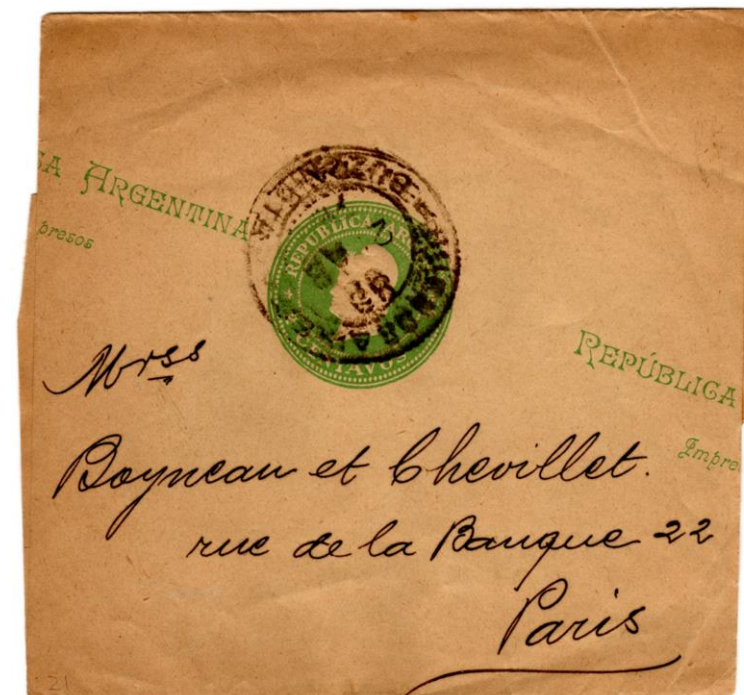 ARGENTINA
REPUBLICA AR
CENTAVOS
BUZONISTA
REPÚBLICA
Mrss
Boyneau et Chevillet.
rue de la Banque 22
Paris
21